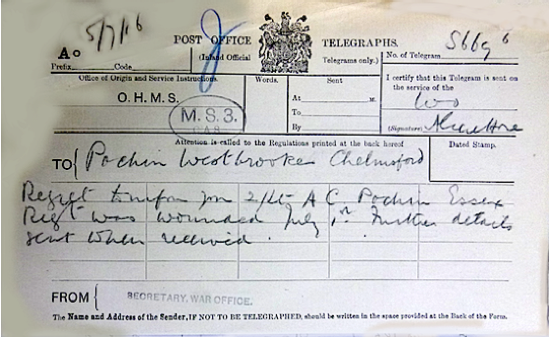 5/7/16
POST OFFICE TELEGRAPHS.
Aº (Inland Official Telegrams only.) No. of Telegram 5669 6
Prefix Code
Office of Origin and Service Instructions. Words. Sent I certify that this Telegram is sent on
the service of the
O.H.M.S. At m. W O
M.S.3. To
CAS By (Signature)
Attention is called to the Regulations printed at the back hereof Dated Stamp.
TO { Pochin Westbrooke Chelmsford
Regret to inform you 2/Lt A C Pochin Essex
Regt was wounded July 1st Further details
sent when received.
FROM { SECRETARY, WAR OFFICE.
The Name and Address of the Sender, IF NOT TO BE TELEGRAPHED, should be written in the space provided at the Back of the Form.